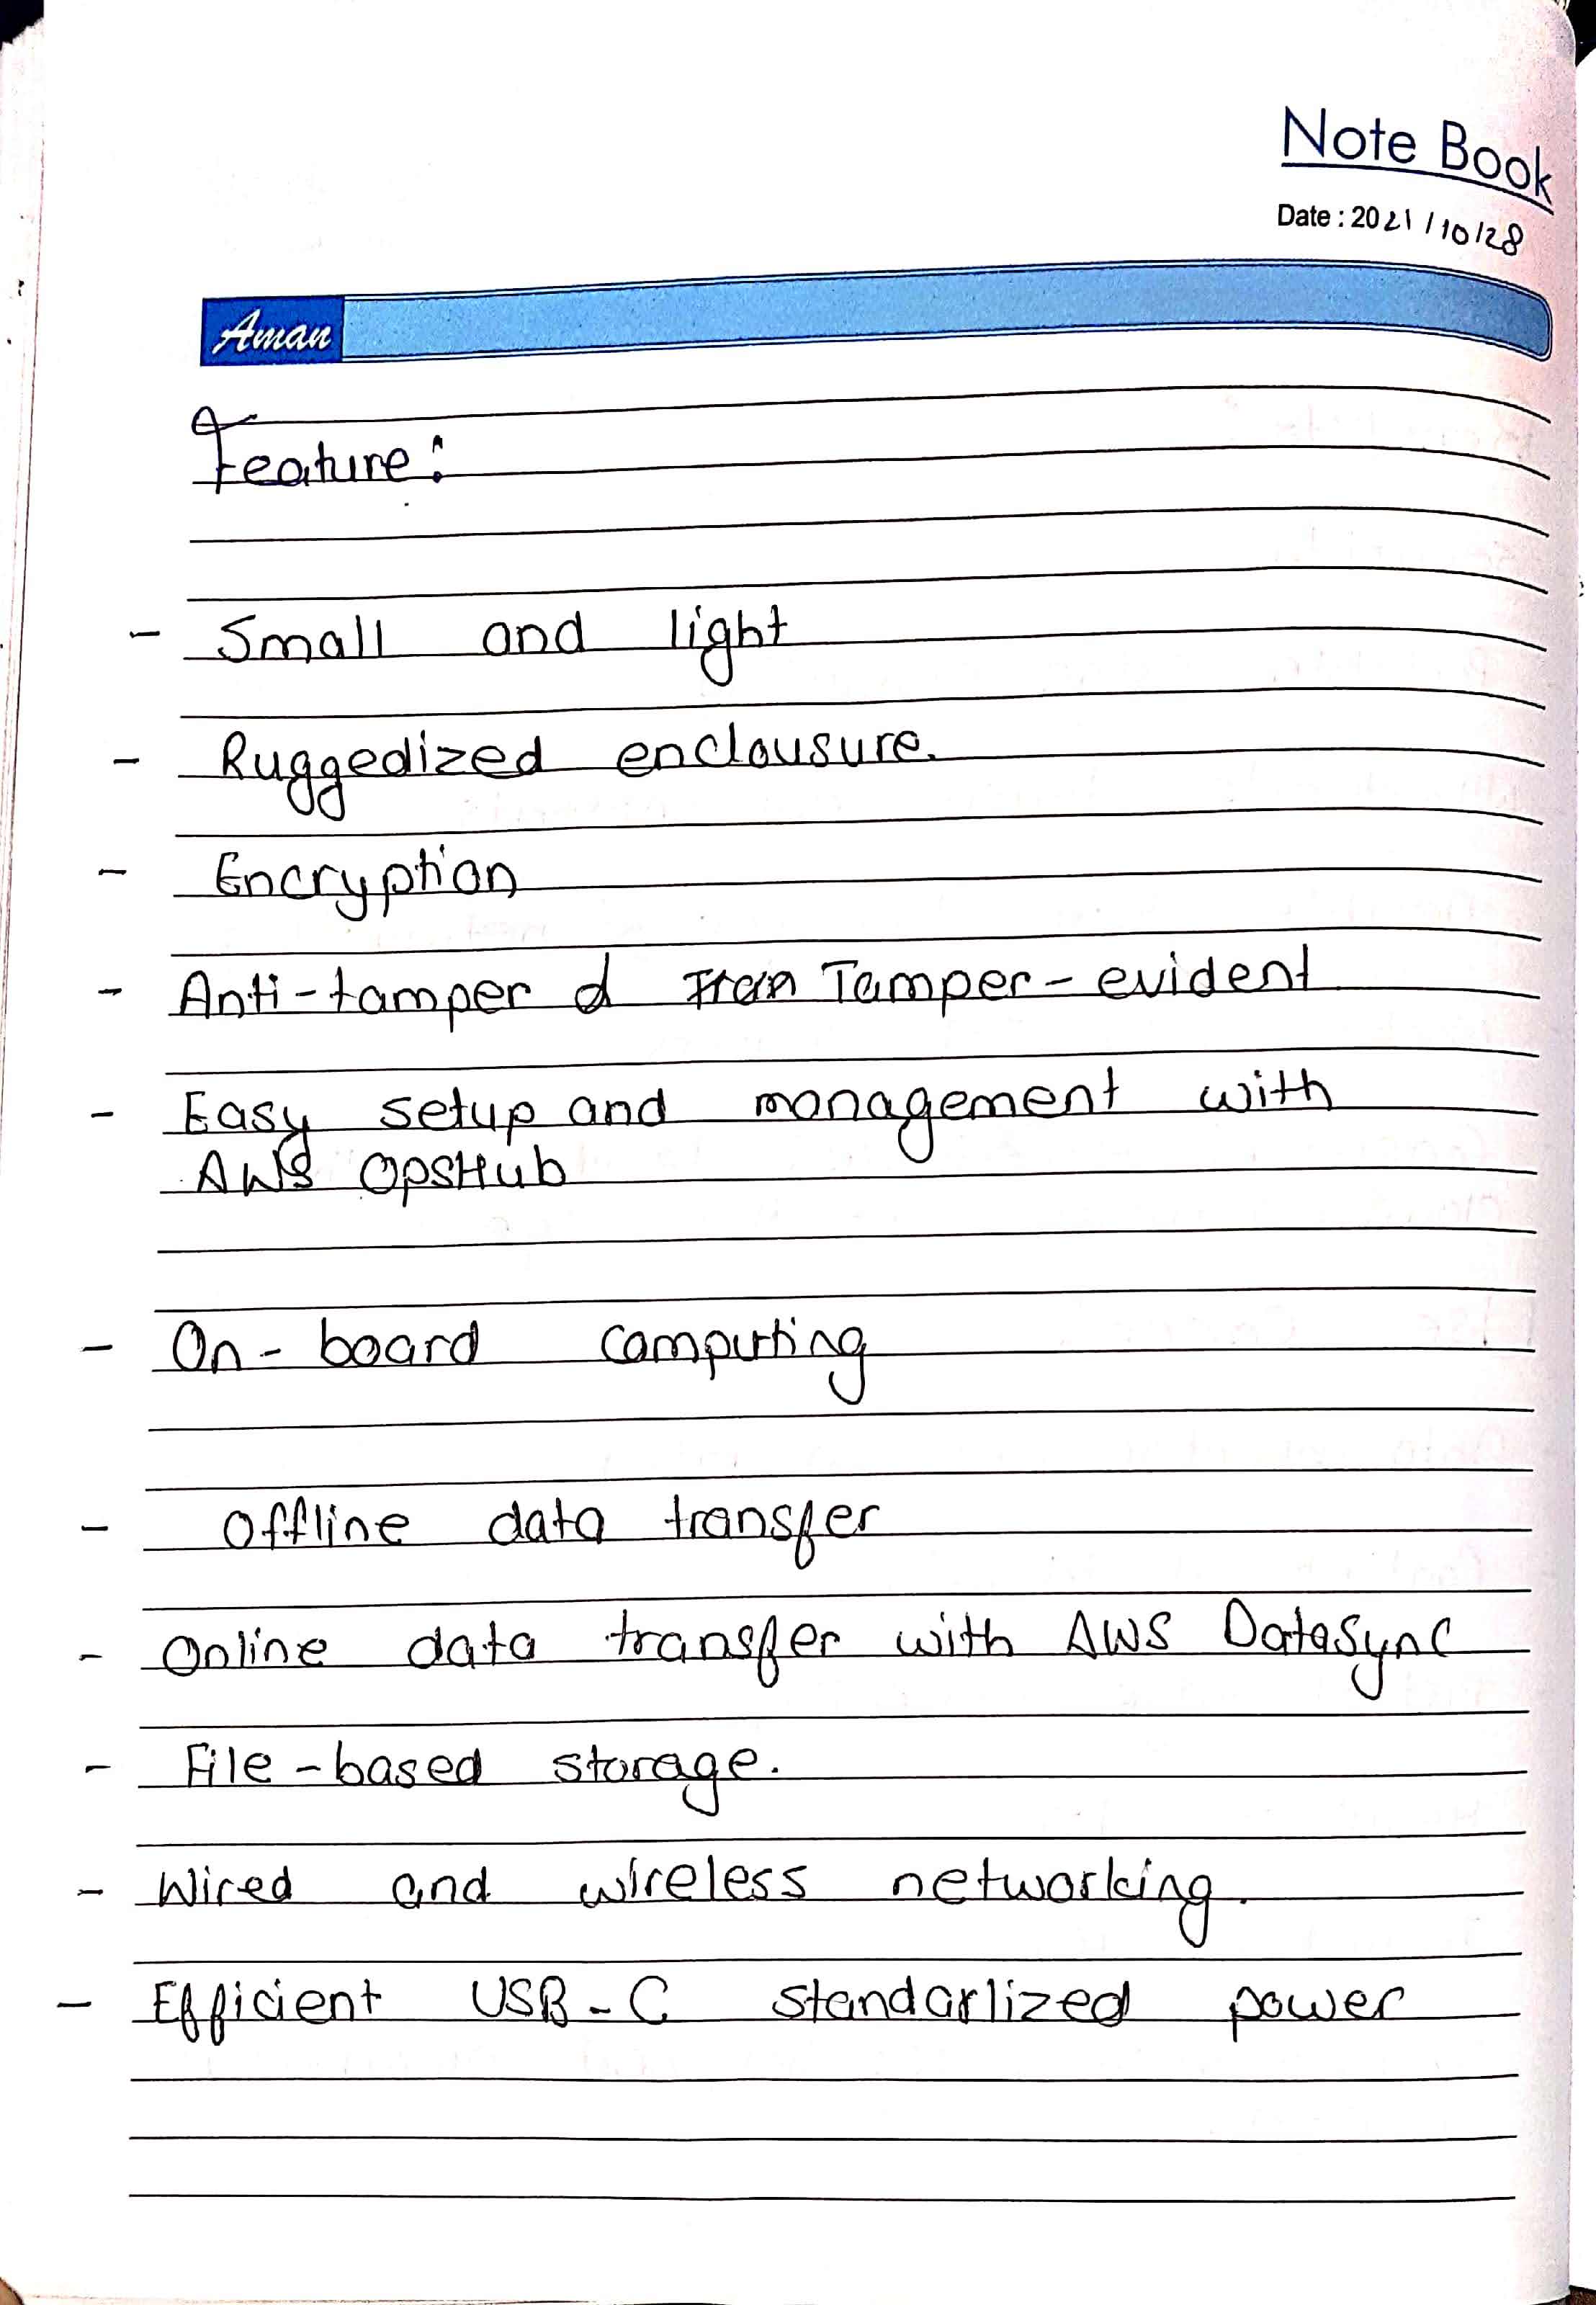 Note Book
Date : 2021/10/28
Aman
Feature:
- Small and light
- Ruggedized enclousure.
- Encryption
- Anti-tamper d Tamper-evident
- Easy setup and management with
AWS OpsHub
- On-board computing
- Offline data transfer
- Online data transfer with AWS DataSync
- File-based storage.
- Wired and wireless networking.
- Efficient USB-C standarlized power